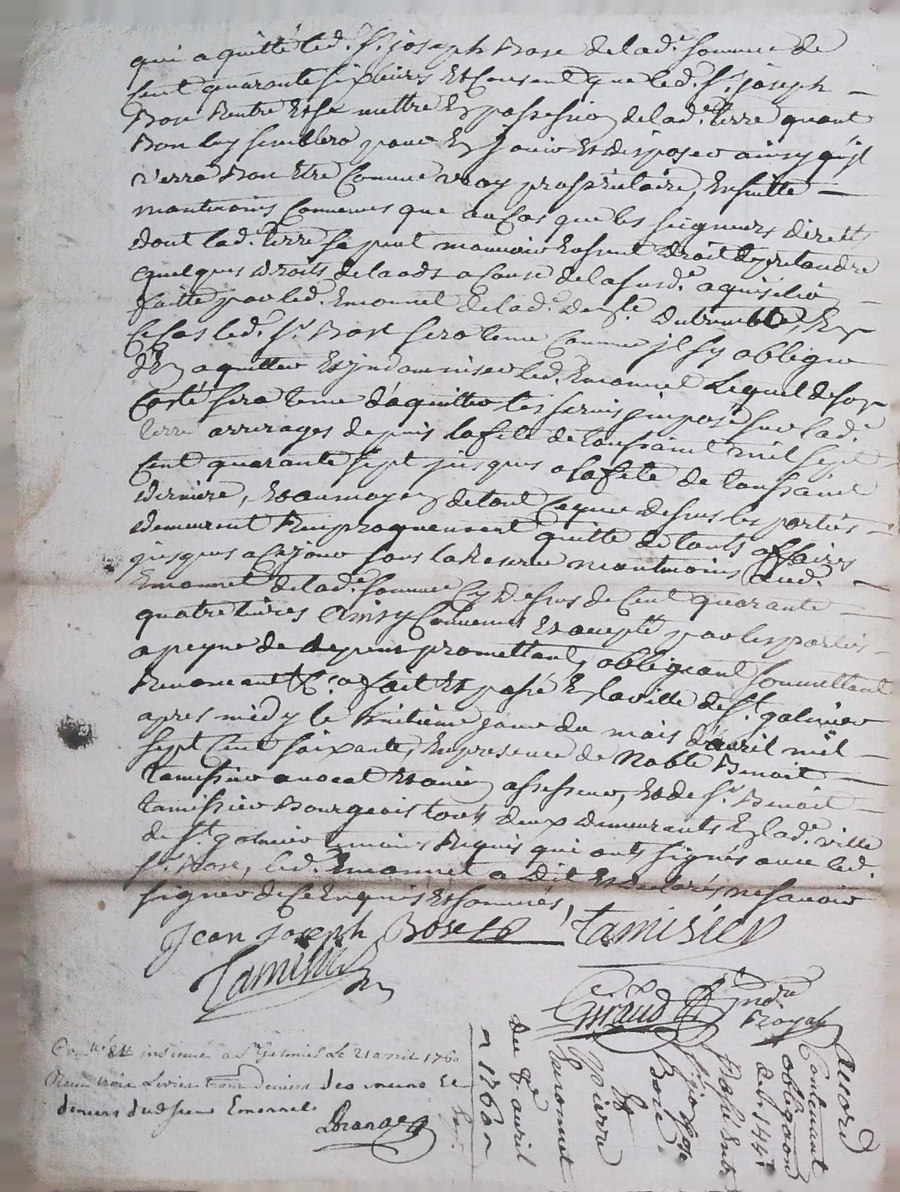 qui a quitté led. Sr. joseph Bose de lad. somme de
Cent quarante six livres Et Consent que led. Sr. joseph
Bose Rentre Et se mettre En possession de lad. terre quant
Bon luy semblera pour En jouir Et disposer ainsy qu'il
verra Bon Etre Comme vray proprietaire, Ensuitte
mantmoins Convenus que au Cas que les seigneurs directs
dont lad. terre se peut mouvoir Eussent droit de pretandre
quelques droits de laods a Cause de la susd. aquisition
faitte par led. Emonnet de lad. En
Ce Cas led. Sr. Bose sera tenu Comme jl sy obligue
d'En aquitter Et jndamniser led. Emonnet Lequel de son
Costé sera tenu d'aquitter les servis jmposé sur lad.
terre arrerages depuis la fete de toussaint mil sept
Cent quarante sept jusques a la fete de toussaint
derniere, Et aumoyen de tout Ceque dessus les parties
demeurent Reciproquement quitte de touts affaires
jusques a Cejour sous la Reserve mantmoins aud.
Emonnet de lad. somme Cy dessus de Cent quarante
quatre livres Ainsy Convenus Et accepté par les parties
a peyne de promettant, obligeant, soumettant
Renoncant &c. fait Et passé En la ville de St. galmier
apres midy le huitieme jour du mois d'avril mil
sept Cent soixante, En presence de Noble Benoit
tamisier avocat Et assesseur, Et de Sr. Benoit
tamisier Bourgeois touts deux demeurants En lad. ville
de St. galmier temoins Requis qui onts signés avec led.
Sr. Bose, led. Emonnet a Dit Et declaré ne savoir
signer de Ce Enquis Et sommés,
Jean Joseph Bose tamisier
Tamisier
Giraud Nore. Royal
insinué a St. Galmier Le 21 avril 1760
Recu trois Livres trois deniers
deniers dud sieur Emonnet
Acord
Contenant
obligaon
de 144lt
Joseph
Bose
Pierre
Emonnet
du 8e avril
1760